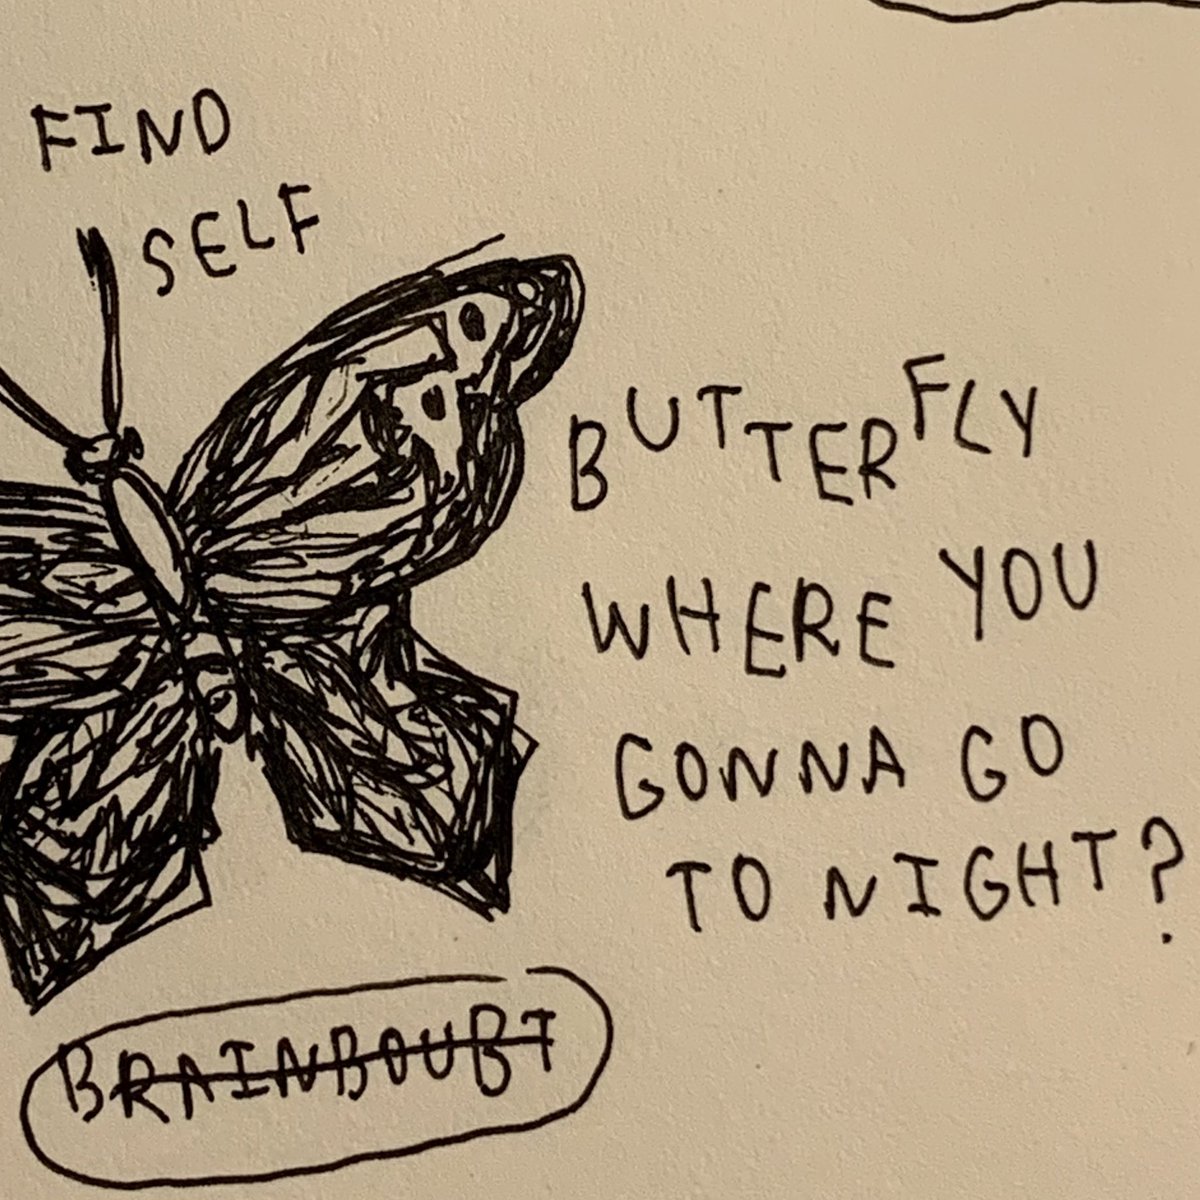 FIND
SELF
BUTTERFLY
WHERE YOU
GONNA GO
TO NIGHT?
BRAINBOUBT